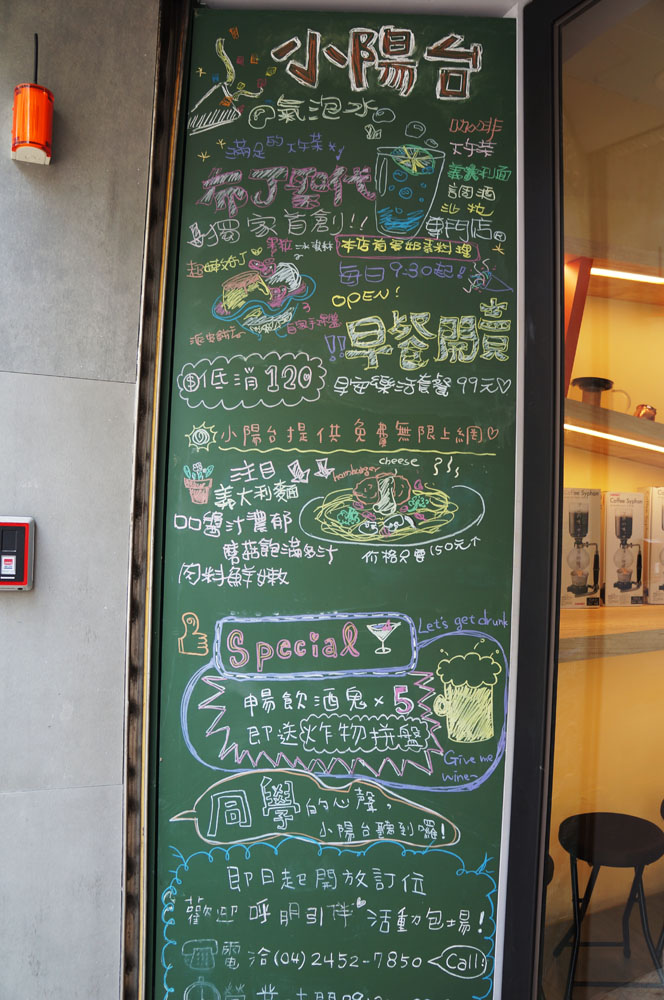 小陽台
@氣泡水
咖啡
下午茶
義義利面
調酒
沙拉
專門店
滿足的下午茶
布丁聖代
獨家首創!!
本店有蛋奶素料理
每日9:30起!
OPEN!
!!早餐開賣
早安樂活套餐99元♡
$低消120
小陽台提供免費無限上網♡
注目
義大利麵
hamburger
cheese
口口醬汁濃郁
蘑菇飽滿多汁
肉料鮮嫩
價格只要150元↑
Special
Let's get drunk
暢飲酒鬼×5
即送炸物拼盤
Give me
wine~
同學的心聲,
小陽台聽到囉!
即日起開放訂位
歡迎呼朋引伴活動包場!
電洽(04)2452-7850
Call:
Coffee Syphon
Coffee Syphon